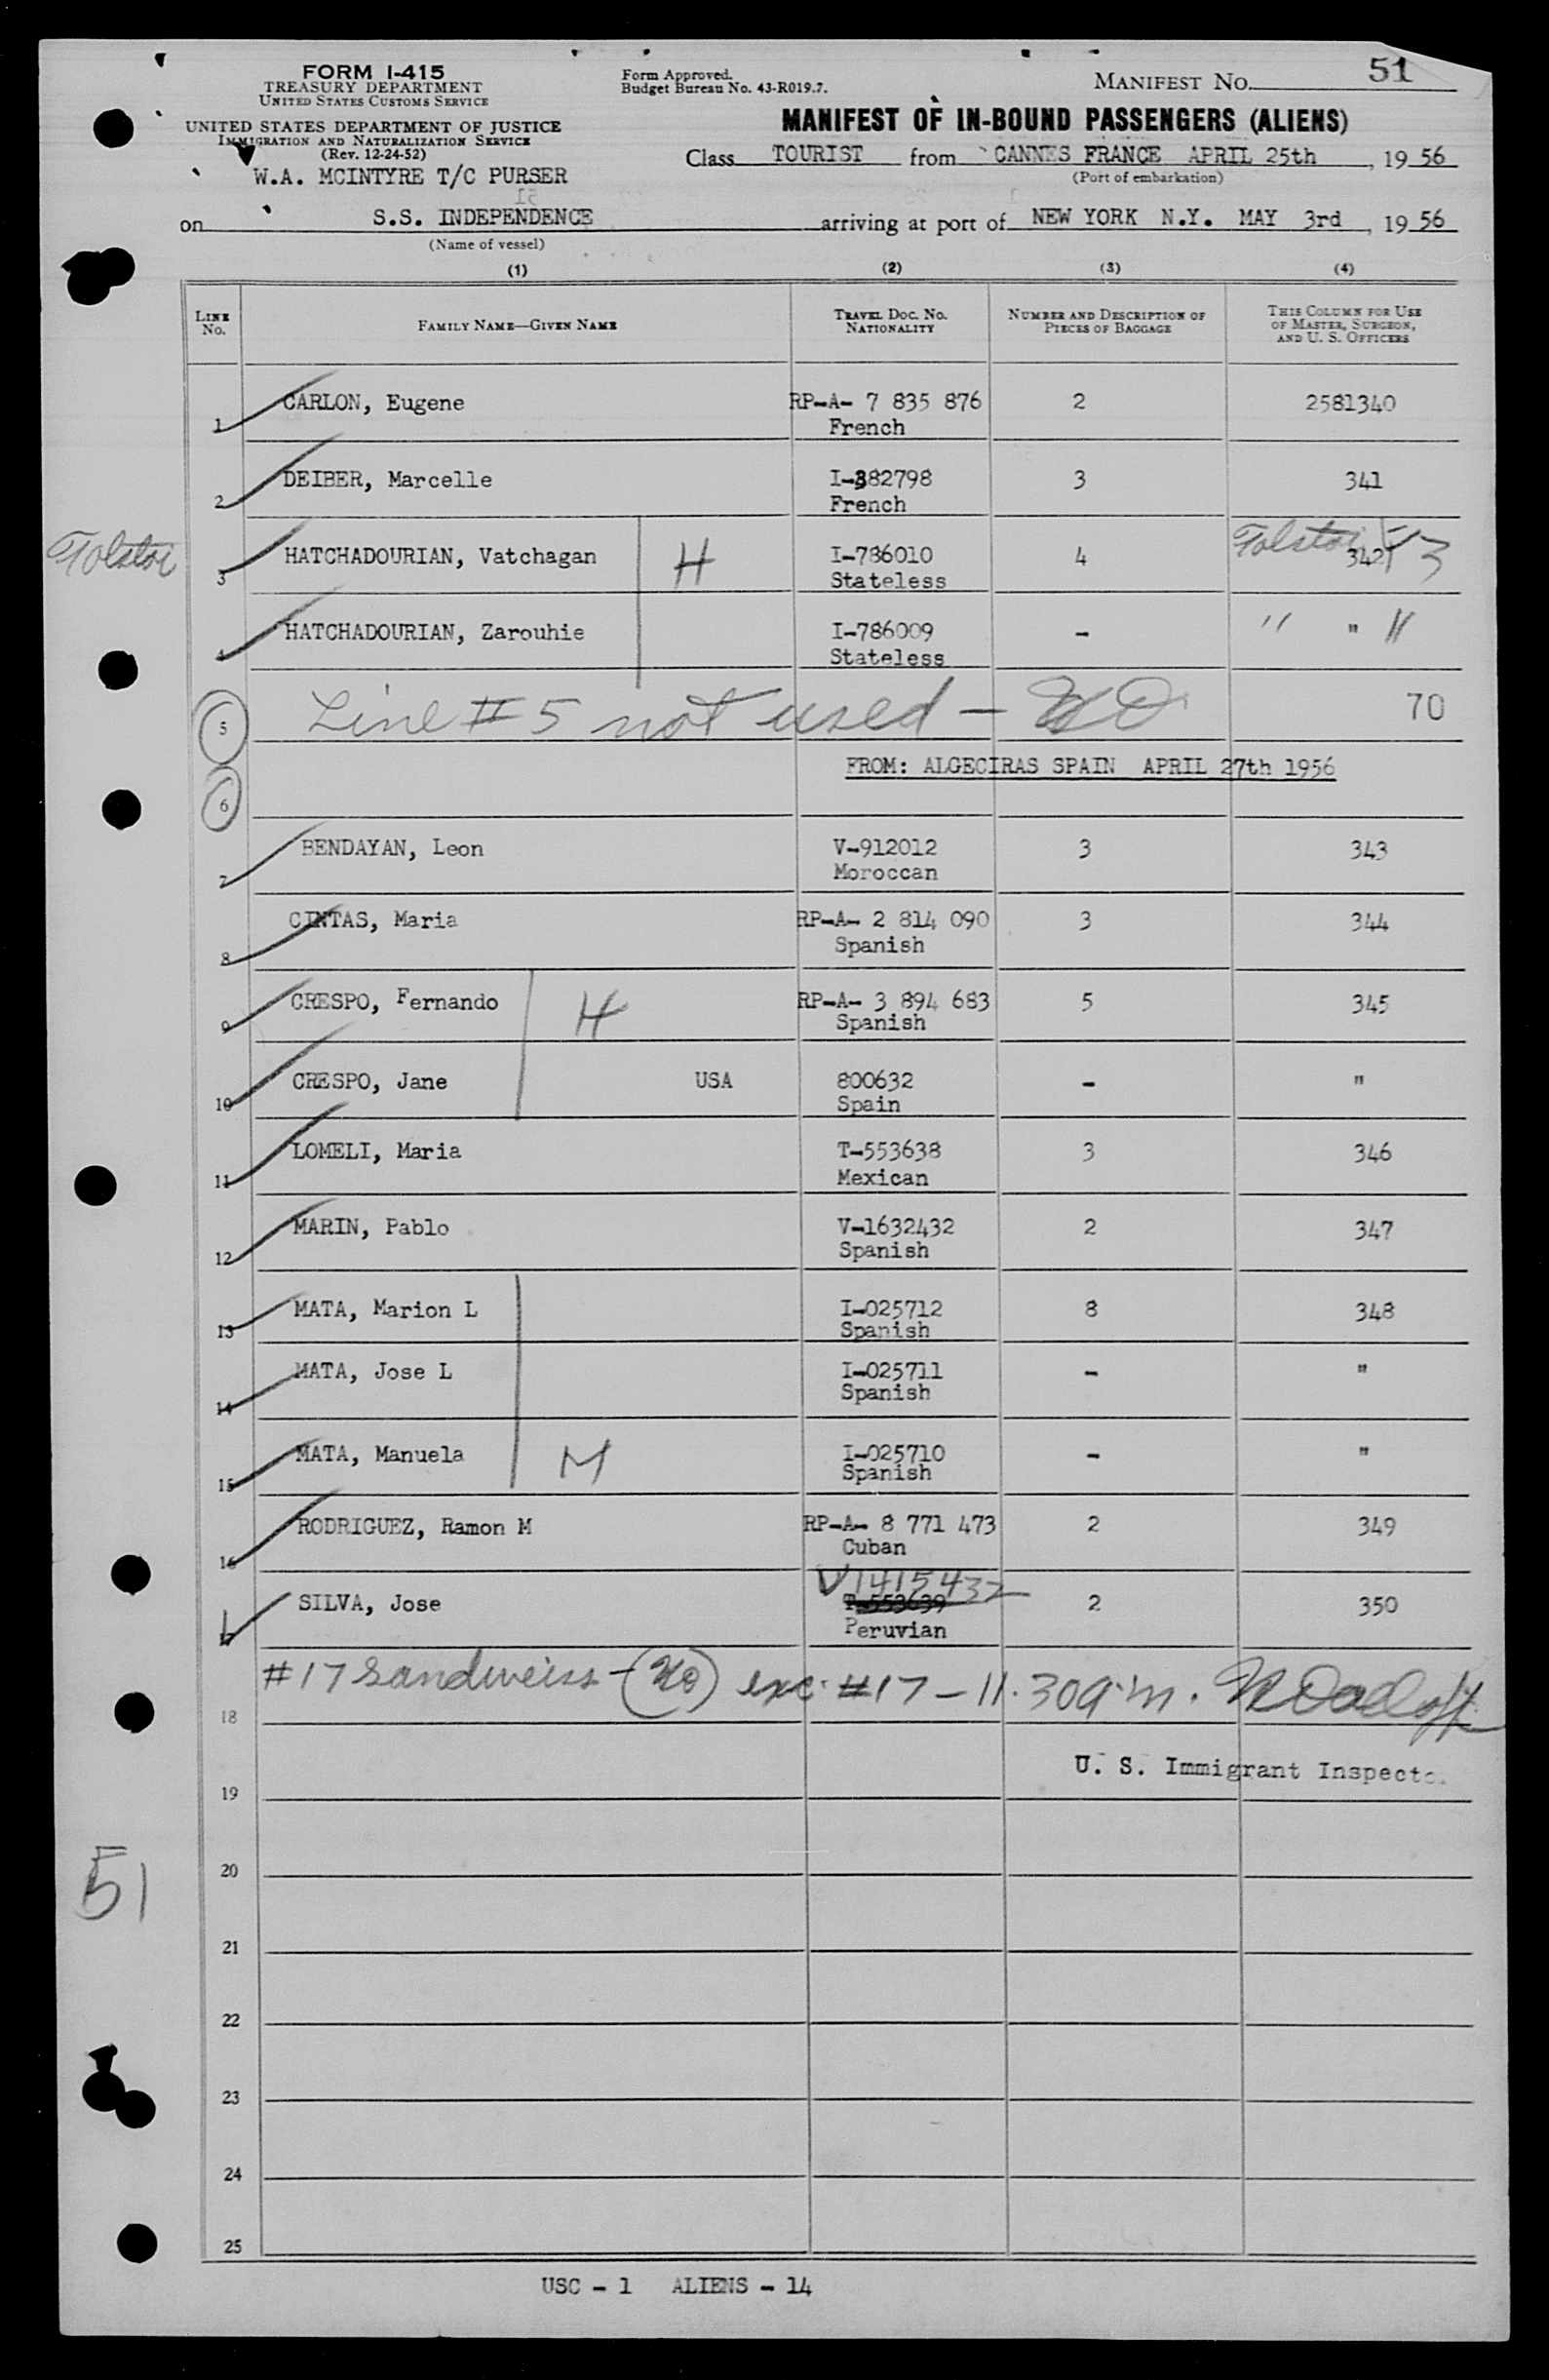 FORM I-415
TREASURY DEPARTMENT
UNITED STATES CUSTOMS SERVICE
UNITED STATES DEPARTMENT OF JUSTICE
IMMIGRATION AND NATURALIZATION SERVICE
(Rev. 12-24-52)
W.A. MCINTYRE T/C PURSER
Form Approved.
Budget Bureau No. 43-R019.7.
MANIFEST NO. 51
MANIFEST OF IN-BOUND PASSENGERS (ALIENS)
Class TOURIST from CANNES FRANCE APRIL 25th, 19 56
(Port of embarkation)
on S.S. INDEPENDENCE arriving at port of NEW YORK N.Y. MAY 3rd, 19 56
(Name of vessel)
(1) (2) (3) (4)
LINE No. FAMILY NAME—GIVEN NAME TRAVEL DOC. NO. NATIONALITY NUMBER AND DESCRIPTION OF PIECES OF BAGGAGE THIS COLUMN FOR USE OF MASTER, SURGEON, AND U. S. OFFICERS
1 CARLON, Eugene RP-A- 7 835 876 2 2581340
French
2 DEIBER, Marcelle I-382798 3 341
French
Tolstoi 3 HATCHADOURIAN, Vatchagan H I-786010 4 Tolstoi 342 3
Stateless
4 HATCHADOURIAN, Zarouhie I-786009 - " " "
Stateless
5 Line # 5 not used - 70
FROM: ALGECIRAS SPAIN APRIL 27th 1956
6
7 BENDAYAN, Leon V-912012 3 343
Moroccan
8 CINTAS, Maria RP-A- 2 814 090 3 344
Spanish
9 CRESPO, Fernando H RP-A- 3 894 683 5 345
Spanish
10 CRESPO, Jane USA 800632 - "
Spain
11 LOMELI, Maria T-553638 3 346
Mexican
12 MARIN, Pablo V-1632432 2 347
Spanish
13 MATA, Marion L I-025712 8 348
Spanish
14 MATA, Jose L I-025711 - "
Spanish
15 MATA, Manuela M I-025710 - "
Spanish
16 RODRIGUEZ, Ramon M RP-A- 8 771 473 2 349
Cuban
V1415432
17 SILVA, Jose T-553639 2 350
Peruvian
#17 Sandweiss - exc. #17 - 11.30 a.m.
18
U. S. Immigrant Inspecto.
19
20
51
21
22
23
24
25
USC - 1 ALIENS - 14